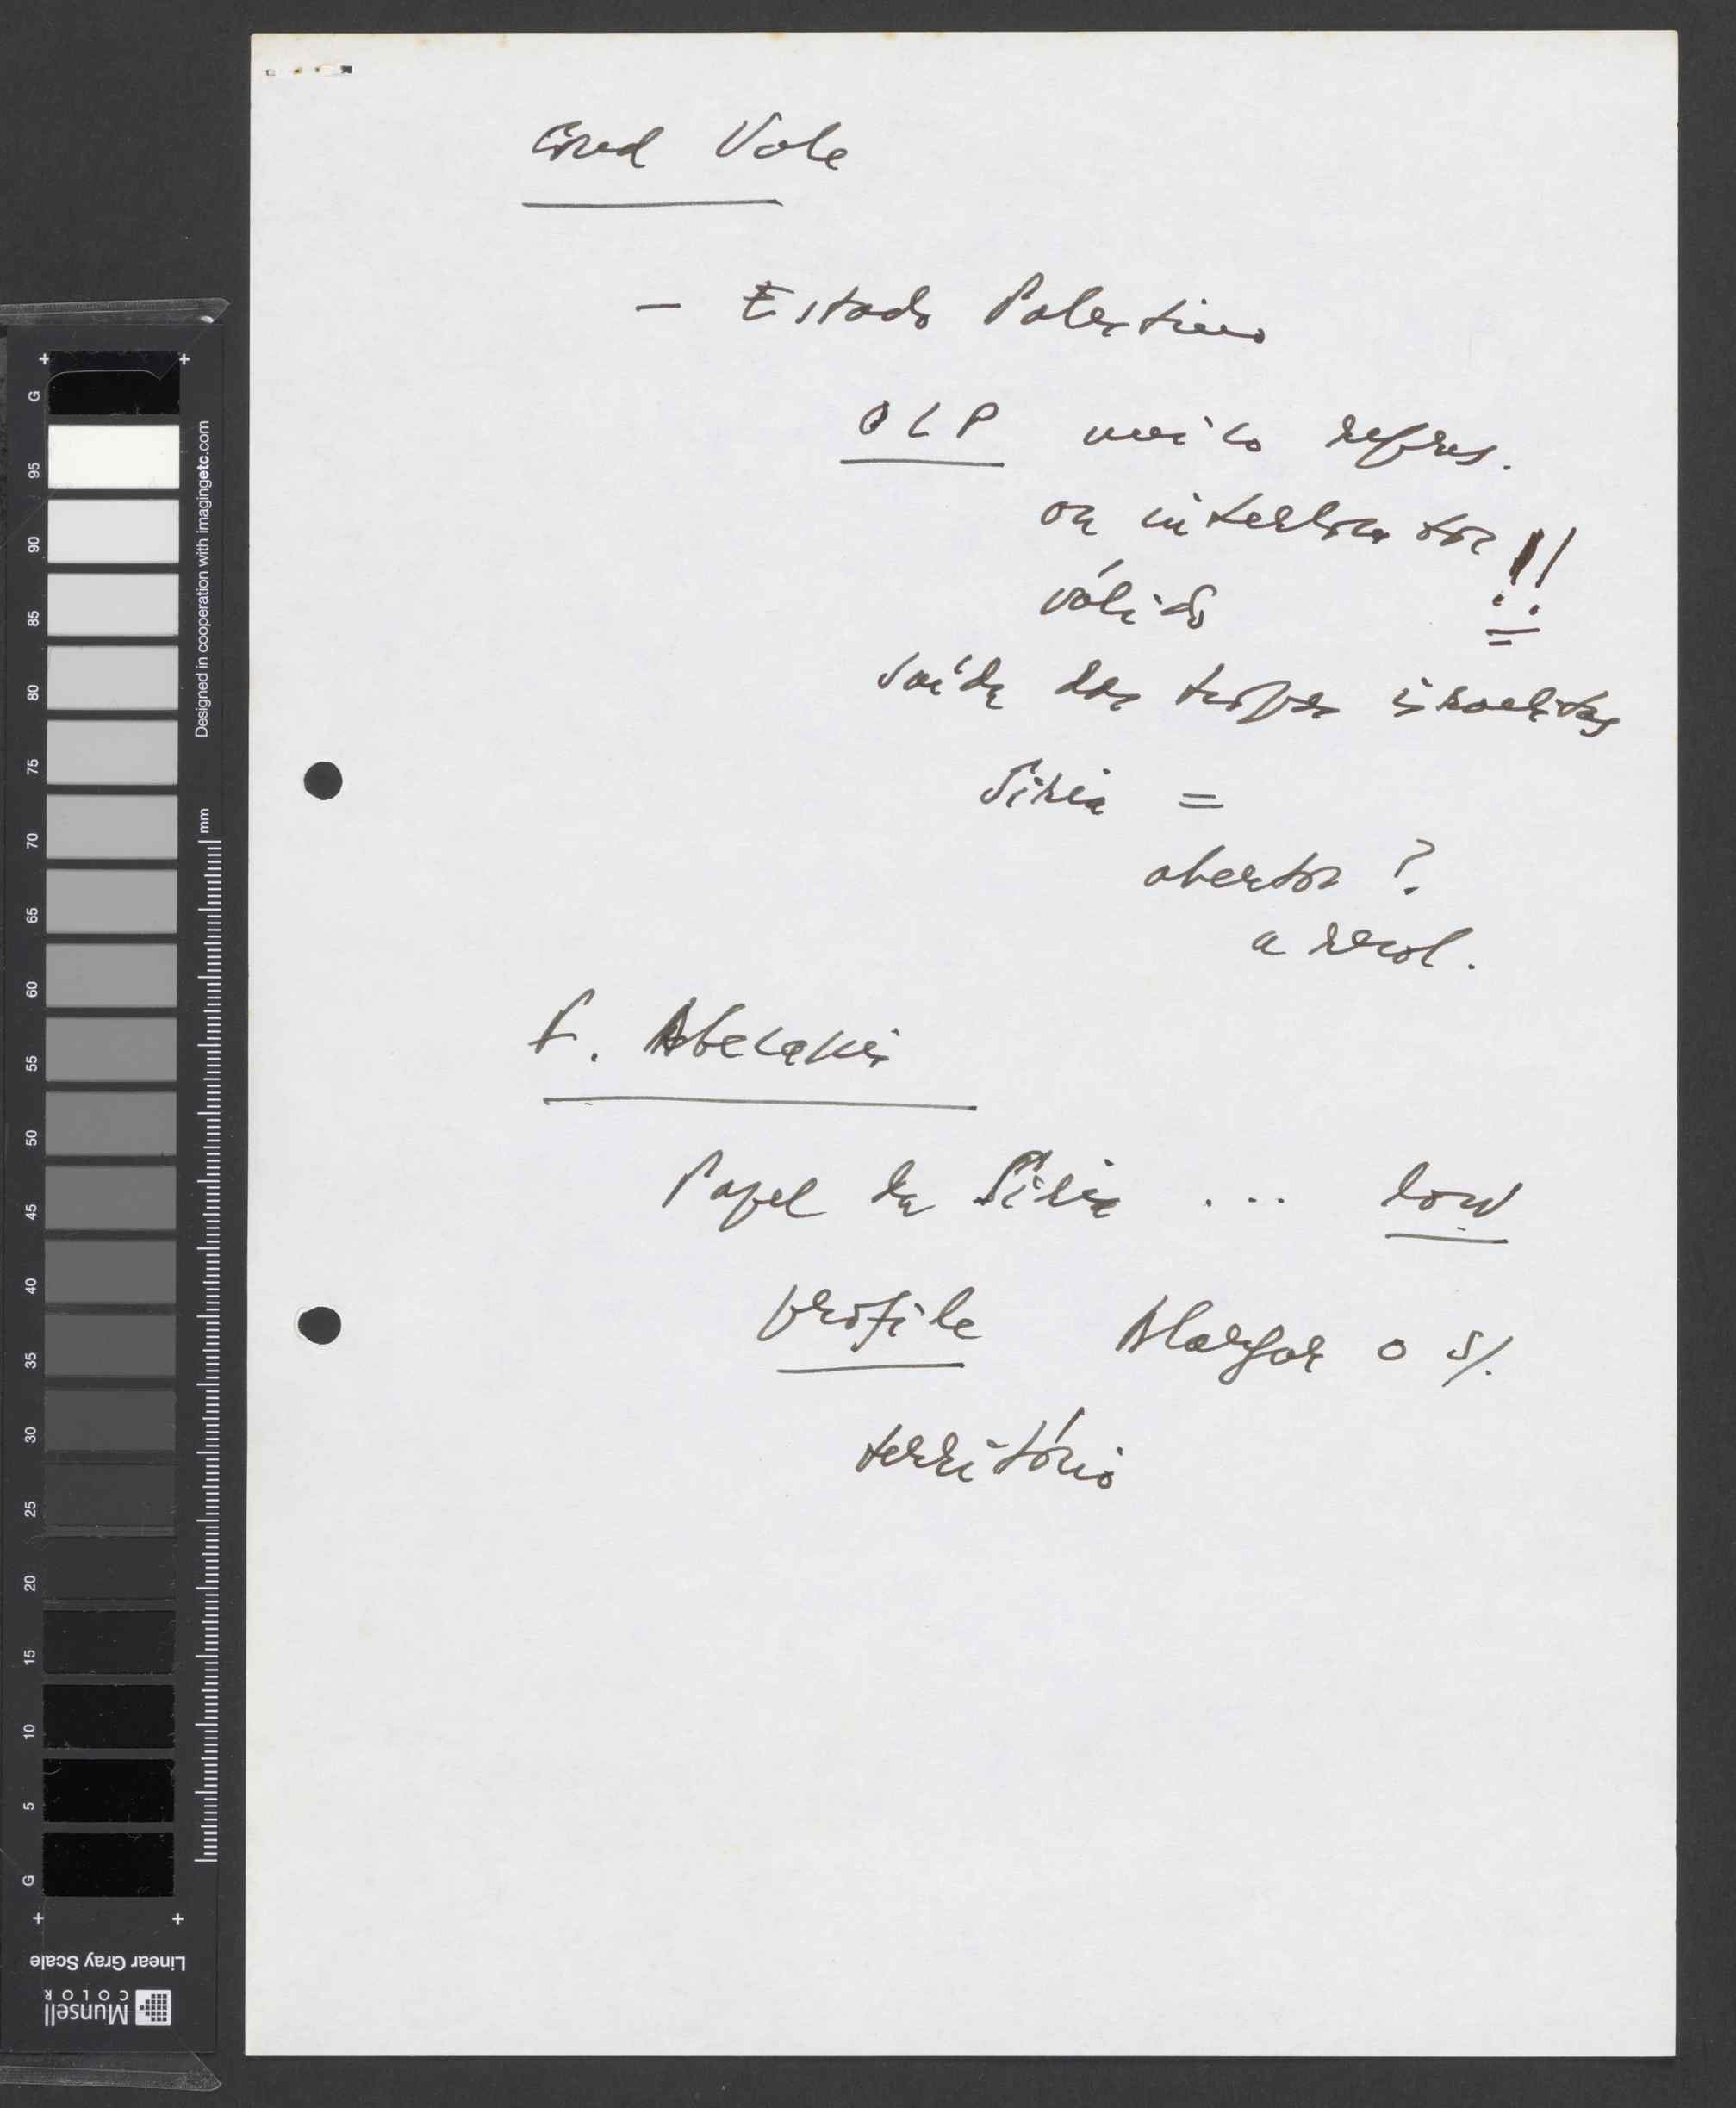 Cord Vale
— Estado Palestino
OLP único repres.
ou interlocutor !!
válido
saída das tropas israelitas
Síria =
abertos ?
a resol.
P. Abecassis
Papel da Síria ... low
profile Alargar o s/.
território
G 95 90 85 80 75 70 65 60 55 50 45 40 35 30 25 20 15 10 5 G
Designed in cooperation with imagingetc.com
mm
Linear Gray Scale
Munsell
COLOR